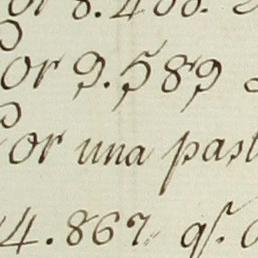 or 8.400.
Por 9.589
Por una past
14.867 qs.